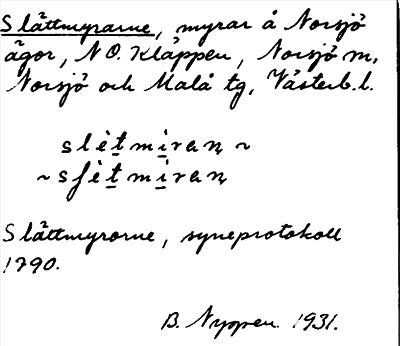 Slåttmyrarne, myrar å Norsjö
ägor, N O. Kläppen, Norsjö sn,
Norsjö och Malå tg, Västerb. l.
slètmiran ~
~ sfètmiran
Slåttmyrorne, syneprotokoll
1790.
B. Nyppen. 1931.